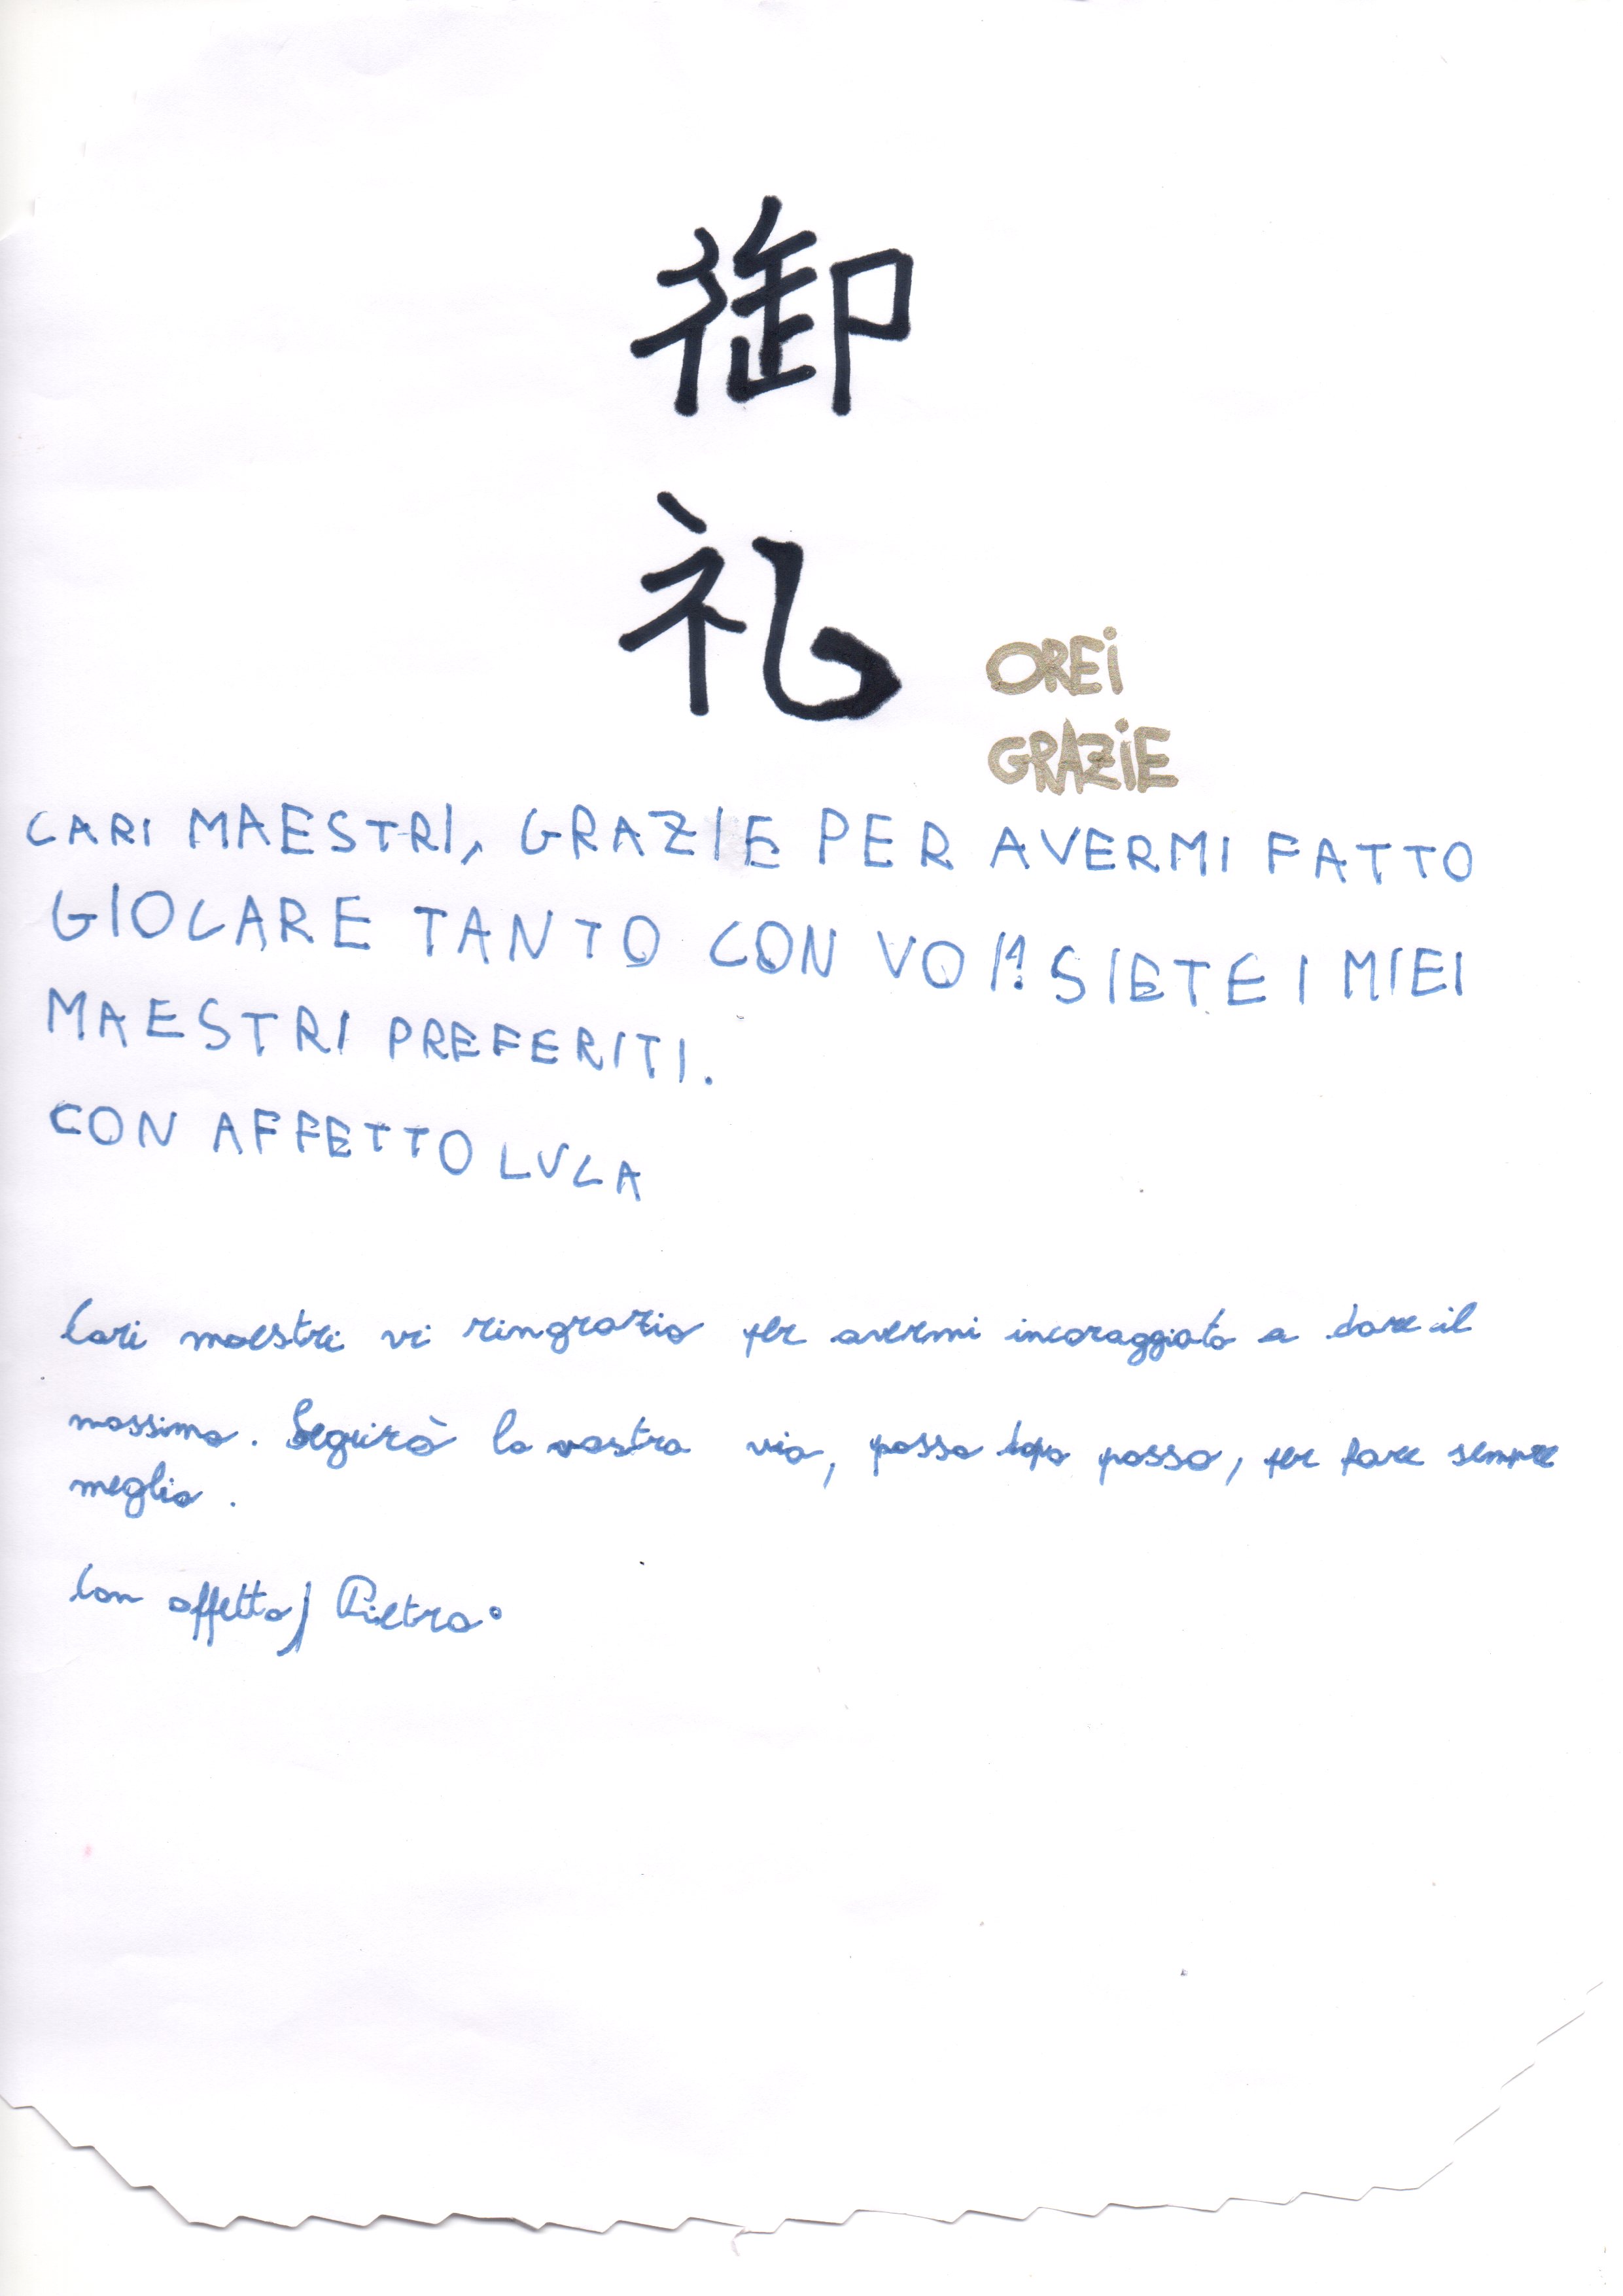 御
礼
OREi
GRAZiE
CARI MAESTRI, GRAZIE PER AVERMI FATTO
GIOCARE TANTO CON VOI! SIETE I MIEI
MAESTRI PREFERITI.
CON AFFETTO LUCA
Cari maestri vi ringrazio per avermi incoraggiato a dare il
massimo. Seguirò la vostra via, passo dopo passo, per fare sempre
meglio.
Con affetto, Pietro.